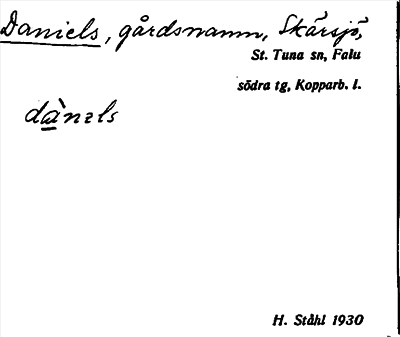 Daniels, gårdsnamn, Skärsjö,
St. Tuna sn, Falu
södra tg, Kopparb. l.
dànəls
H. Ståhl 1930